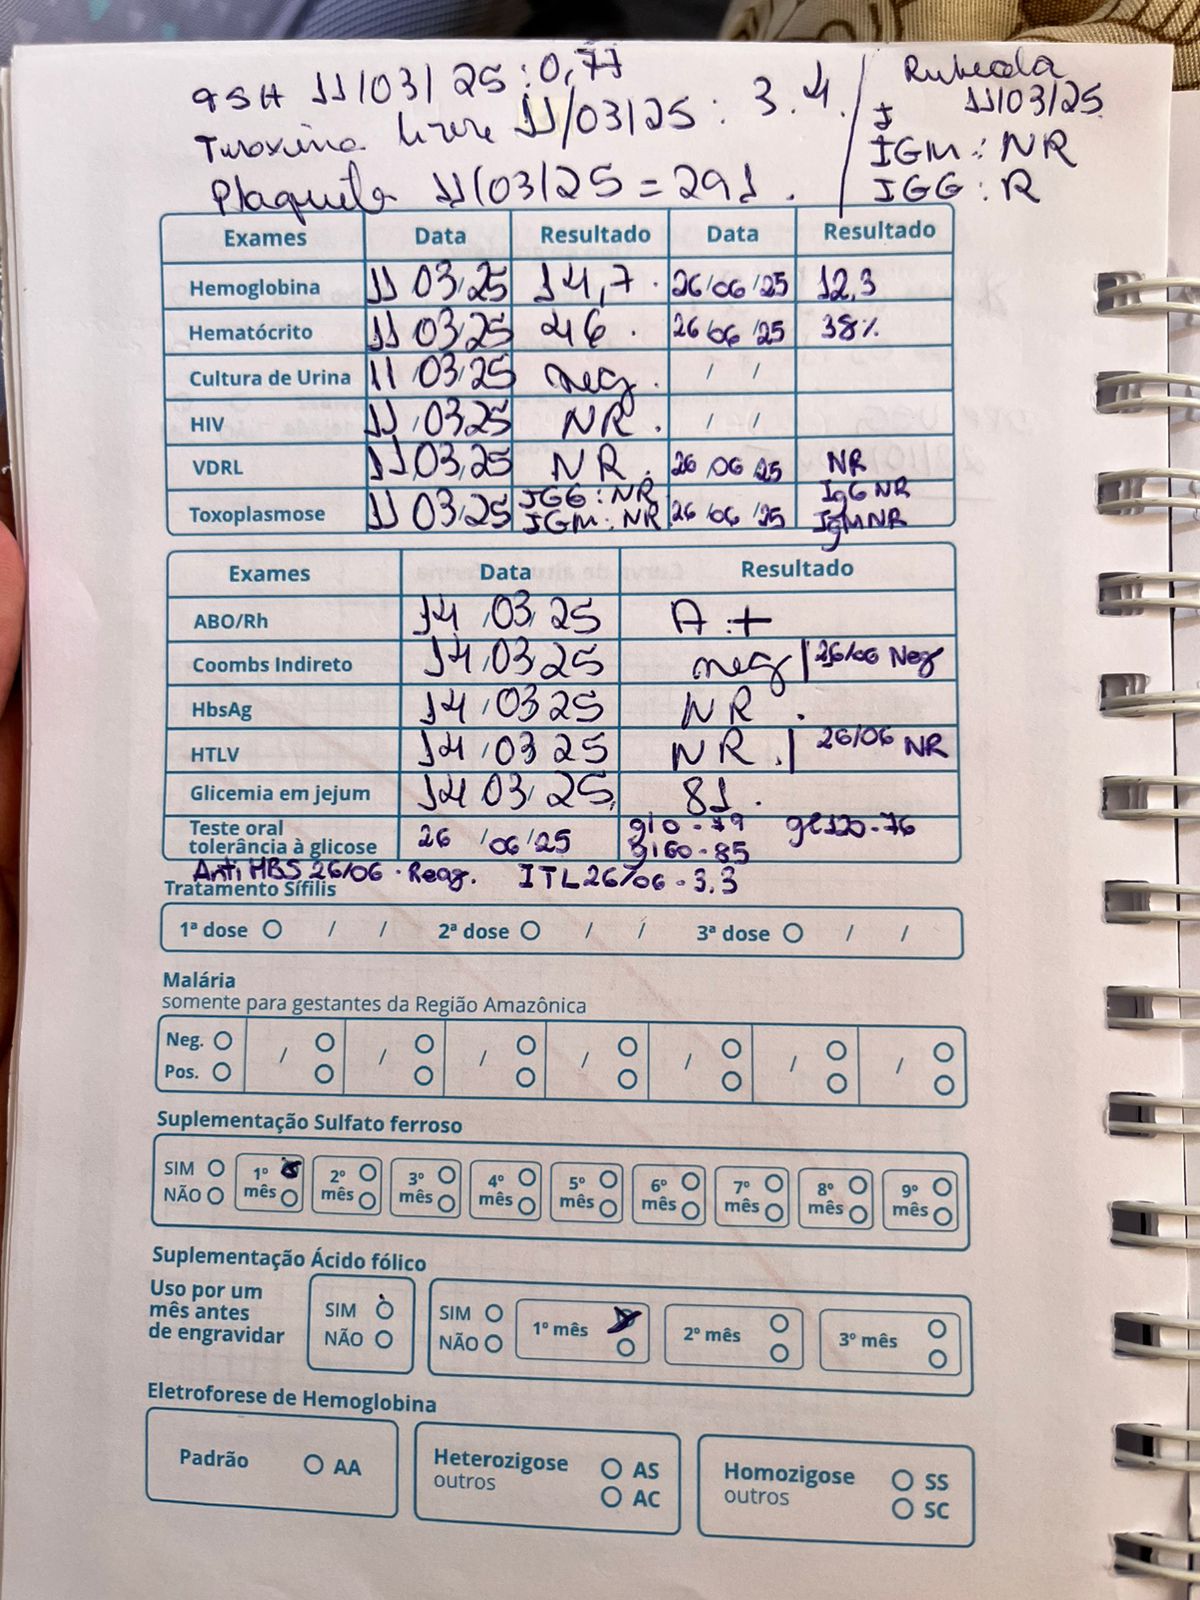 TSH 11/03/25 : 0,77
Tiroxina livre 11/03/25 : 3.4.
Plaqueta 11/03/25 = 291.
Rubeola
11/03/25
IGM : NR
IGG : R
Exames Data Resultado Data Resultado
Hemoglobina 11/03/25 14,7. 26/06/25 12,3
Hematócrito 11/03/25 46. 26/06/25 38%
Cultura de Urina 11/03/25 neg. / /
HIV 11/03/25 NR. / /
VDRL 11/03/25 NR. 26/06/25 NR
Toxoplasmose 11/03/25 IGG : NR IGM : NR 26/06/25 IgG NR IgM NR
Exames Data Resultado
ABO/Rh 14/03/25 A +
Coombs Indireto 14/03/25 neg | 26/06 Neg
HbsAg 14/03/25 NR.
HTLV 14/03/25 NR. | 26/06 NR
Glicemia em jejum 14/03/25 81.
Teste oral tolerância à glicose 26/06/25 gl 0 - 79 gl 60 - 85 gl 120 - 76
Anti HBS 26/06 - Reag. ITL 26/06 - 3,3
Tratamento Sífilis
1ª dose / / 2ª dose / / 3ª dose / /
Malária
somente para gestantes da Região Amazônica
Neg. / / / / / / /
Pos.
Suplementação Sulfato ferroso
SIM 1º mês 2º mês 3º mês 4º mês 5º mês 6º mês 7º mês 8º mês 9º mês
NÃO
Suplementação Ácido fólico
Uso por um mês antes de engravidar
SIM
NÃO
SIM
NÃO
1º mês 2º mês 3º mês
Eletroforese de Hemoglobina
Padrão AA
Heterozigose AS
outros AC
Homozigose SS
outros SC